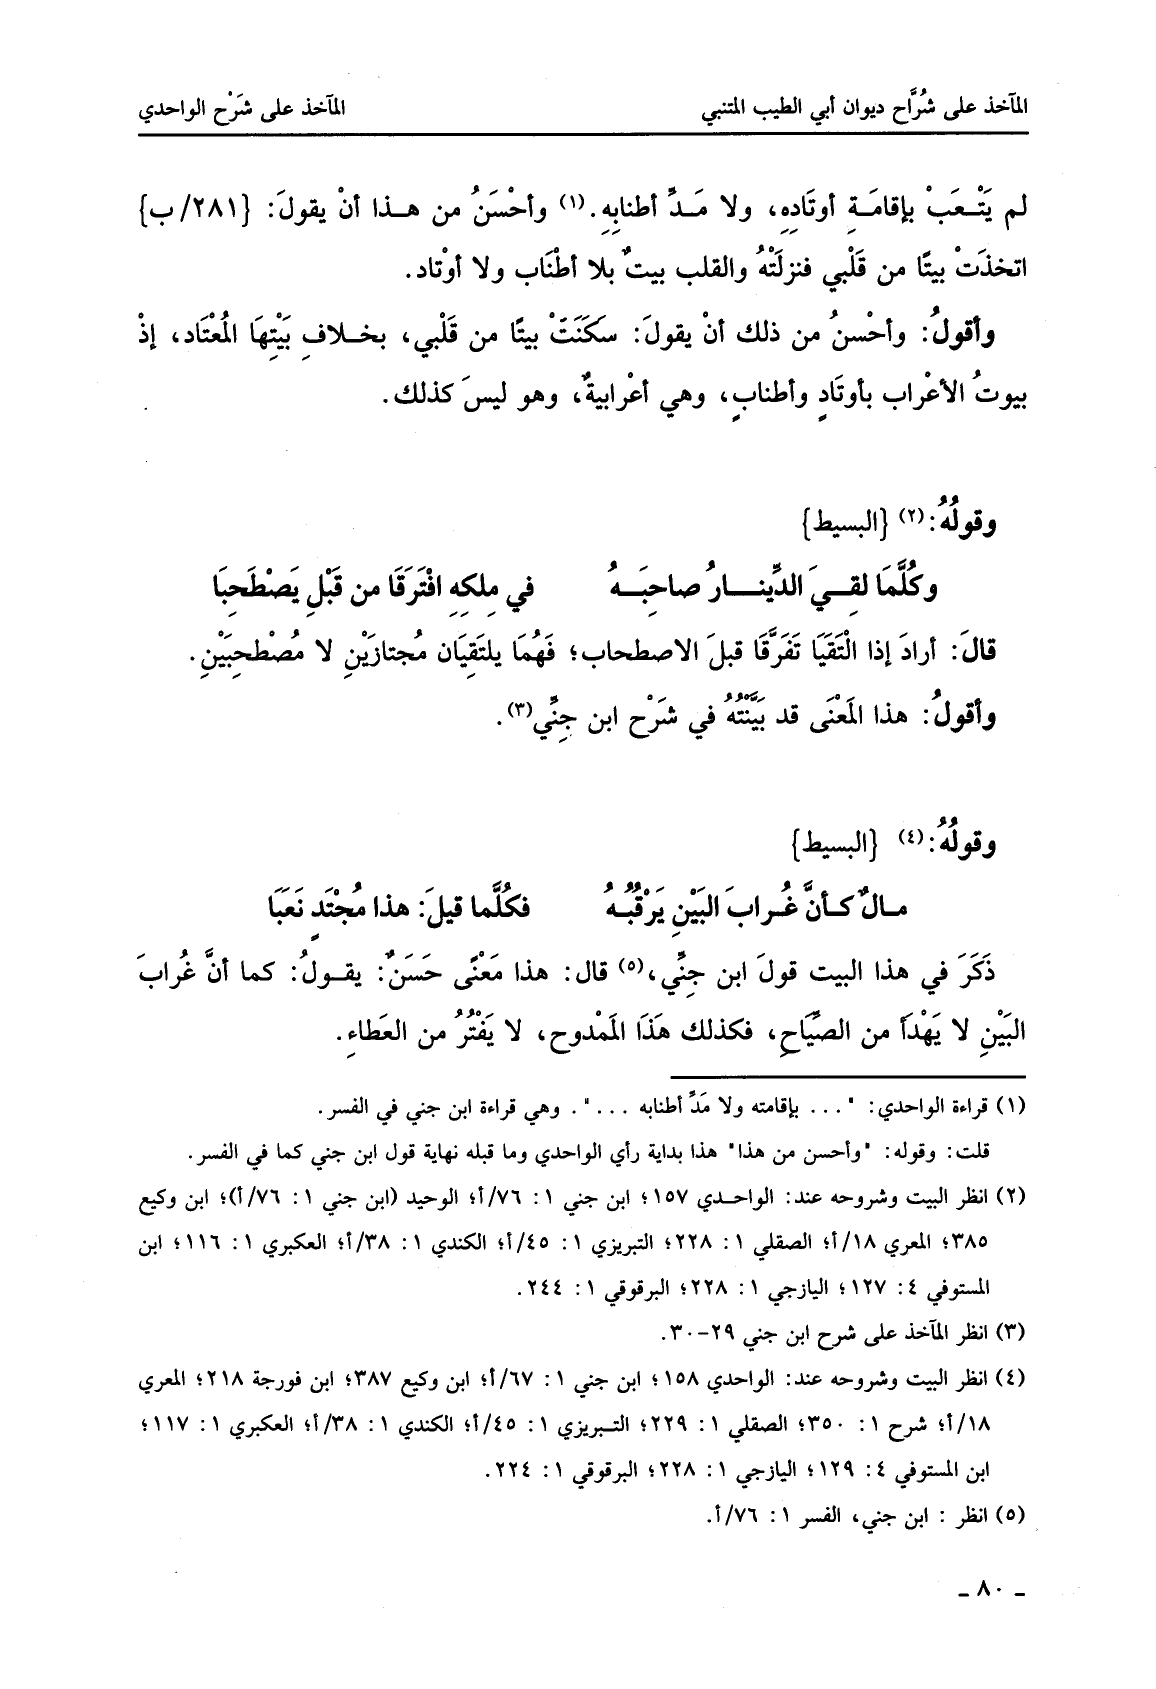 المآخذ على شُرَّاح ديوان أبي الطيب المتنبي المآخذ على شَرْح الواحدي
لم يَتْعَبْ بإقامَةِ أوتَادِهِ، ولا مَدِّ أطنابِهِ.(١) وأحْسَنُ من هذا أنْ يقولَ: {٢٨١/ب}
اتخذَتْ بيتًا من قَلْبي فنزلَتْهُ والقلب بيتٌ بلا أطْنَاب ولا أوْتاد.
وأقولُ: وأحْسنُ من ذلك أنْ يقولَ: سَكَنَتْ بيتًا من قَلْبي، بخلافِ بَيْتِهَا المُعْتَاد، إذْ
بيوتُ الأعْراب بأوتَادٍ وأطنابٍ، وهي أعْرابيةٌ، وهو ليسَ كذلك.
وقولُهُ:(٢) {البسيط}
وكُلَّمَا لقِيَ الدِّينارُ صاحِبَهُ في مِلكِهِ افْتَرَقَا من قَبْلِ يَصْطَحِبَا
قالَ: أرادَ إذا الْتَقَيَا تَفَرَّقَا قبلَ الاصطحاب؛ فَهُمَا يلتَقِيَان مُجتازَيْنِ لا مُصْطحِبَيْنِ.
وأقولُ: هذا المَعْنَى قد بَيَّنْتُهُ في شَرْح ابن جِنِّي(٣).
وقولُهُ:(٤) {البسيط}
مالٌ كأنَّ غُرابَ البَيْنِ يَرْقُبُهُ فكُلَّما قيلَ: هذا مُجْتَدٍ نَعَبَا
ذَكَرَ في هذا البيت قولَ ابن جِنِّي،(٥) قال: هذا مَعْنًى حَسَنٌ: يقولُ: كما أنَّ غُرابَ
البَيْنِ لا يَهْدَأ من الصِّيَاحِ، فكذلك هَذَا المَمْدوح، لا يَفْتُرُ من العَطاءِ.
(١) قراءة الواحدي: "... بإقامته ولا مَدِّ أطنابه ...". وهي قراءة ابن جني في الفسر.
قلت: وقوله: "وأحسن من هذا" هذا بداية رأي الواحدي وما قبله نهاية قول ابن جني كما في الفسر.
(٢) انظر البيت وشروحه عند: الواحدي ١٥٧؛ ابن جني ١: ٧٦/أ؛ الوحيد (ابن جني ١: ٧٦/أ)؛ ابن وكيع
٣٨٥؛ المعري ١٨/أ؛ الصقلي ١: ٢٢٨؛ التبريزي ١: ٤٥/أ؛ الكندي ١: ٣٨/أ؛ العكبري ١: ١١٦؛ ابن
المستوفي ٤: ١٢٧؛ اليازجي ١: ٢٢٨؛ البرقوقي ١: ٢٤٤.
(٣) انظر المآخذ على شرح ابن جني ٢٩-٣٠.
(٤) انظر البيت وشروحه عند: الواحدي ١٥٨؛ ابن جني ١: ٦٧/أ؛ ابن وكيع ٣٨٧؛ ابن فورجة ٢١٨؛ المعري
١٨/أ؛ شرح ١: ٣٥٠؛ الصقلي ١: ٢٢٩؛ التبريزي ١: ٤٥/أ؛ الكندي ١: ٣٨/أ؛ العكبري ١: ١١٧؛
ابن المستوفي ٤: ١٢٩؛ اليازجي ١: ٢٢٨؛ البرقوقي ١: ٢٢٤.
(٥) انظر : ابن جني، الفسر ١: ٧٦/أ.
ـ ٨٠ ـ